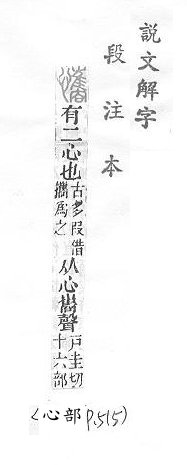 說文解字
段注本
有二心也
古多叚借
攜爲之
从心巂聲
戶圭切
十六部
(心部 p.515)